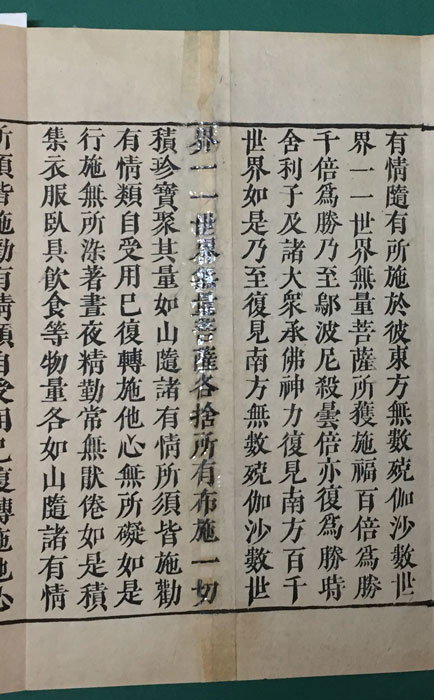 有情隨有所施於彼東方無數殑伽沙數世
界一一世界無量菩薩所獲施福百倍爲勝
千倍爲勝乃至鄔波尼殺曇倍亦復爲勝時
舍利子及諸大衆承佛神力復見南方百千
世界如是乃至復見南方無數殑伽沙數世
界一一世界無量菩薩各捨所有布施一切
積珍寶聚其量如山隨諸有情所須皆施勸
有情類自受用巳復轉施他心無所礙如是
行施無所染著晝夜精勤常無猒倦如是積
集衣服臥具飲食等物量各如山隨諸有情
所須皆施勸有情類自受用巳復轉施他心